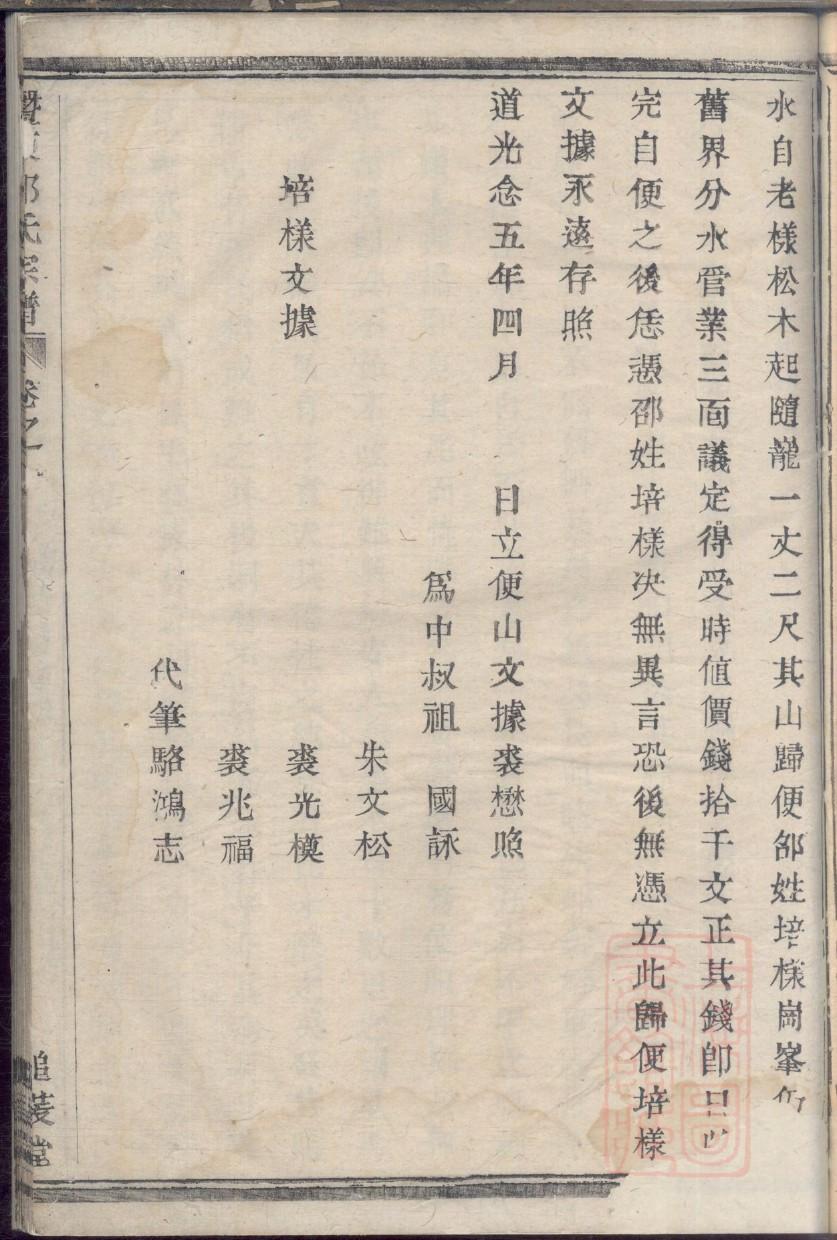 水自老樣松木起隨龍一丈二尺其山歸便邵姓培樣崗峯
舊界分水管業三面議定得受時值價錢拾千文正其錢即日
完自便之後恁憑邵姓培樣决無異言恐後無憑立此歸便培樣
文據永遠存照
道光念五年四月　日立便山文據裘懋照
爲中叔祖　國詠
朱文松
培樣文據　裘光模
裘兆福
代筆駱鴻志
氏宗譜　卷之
堂